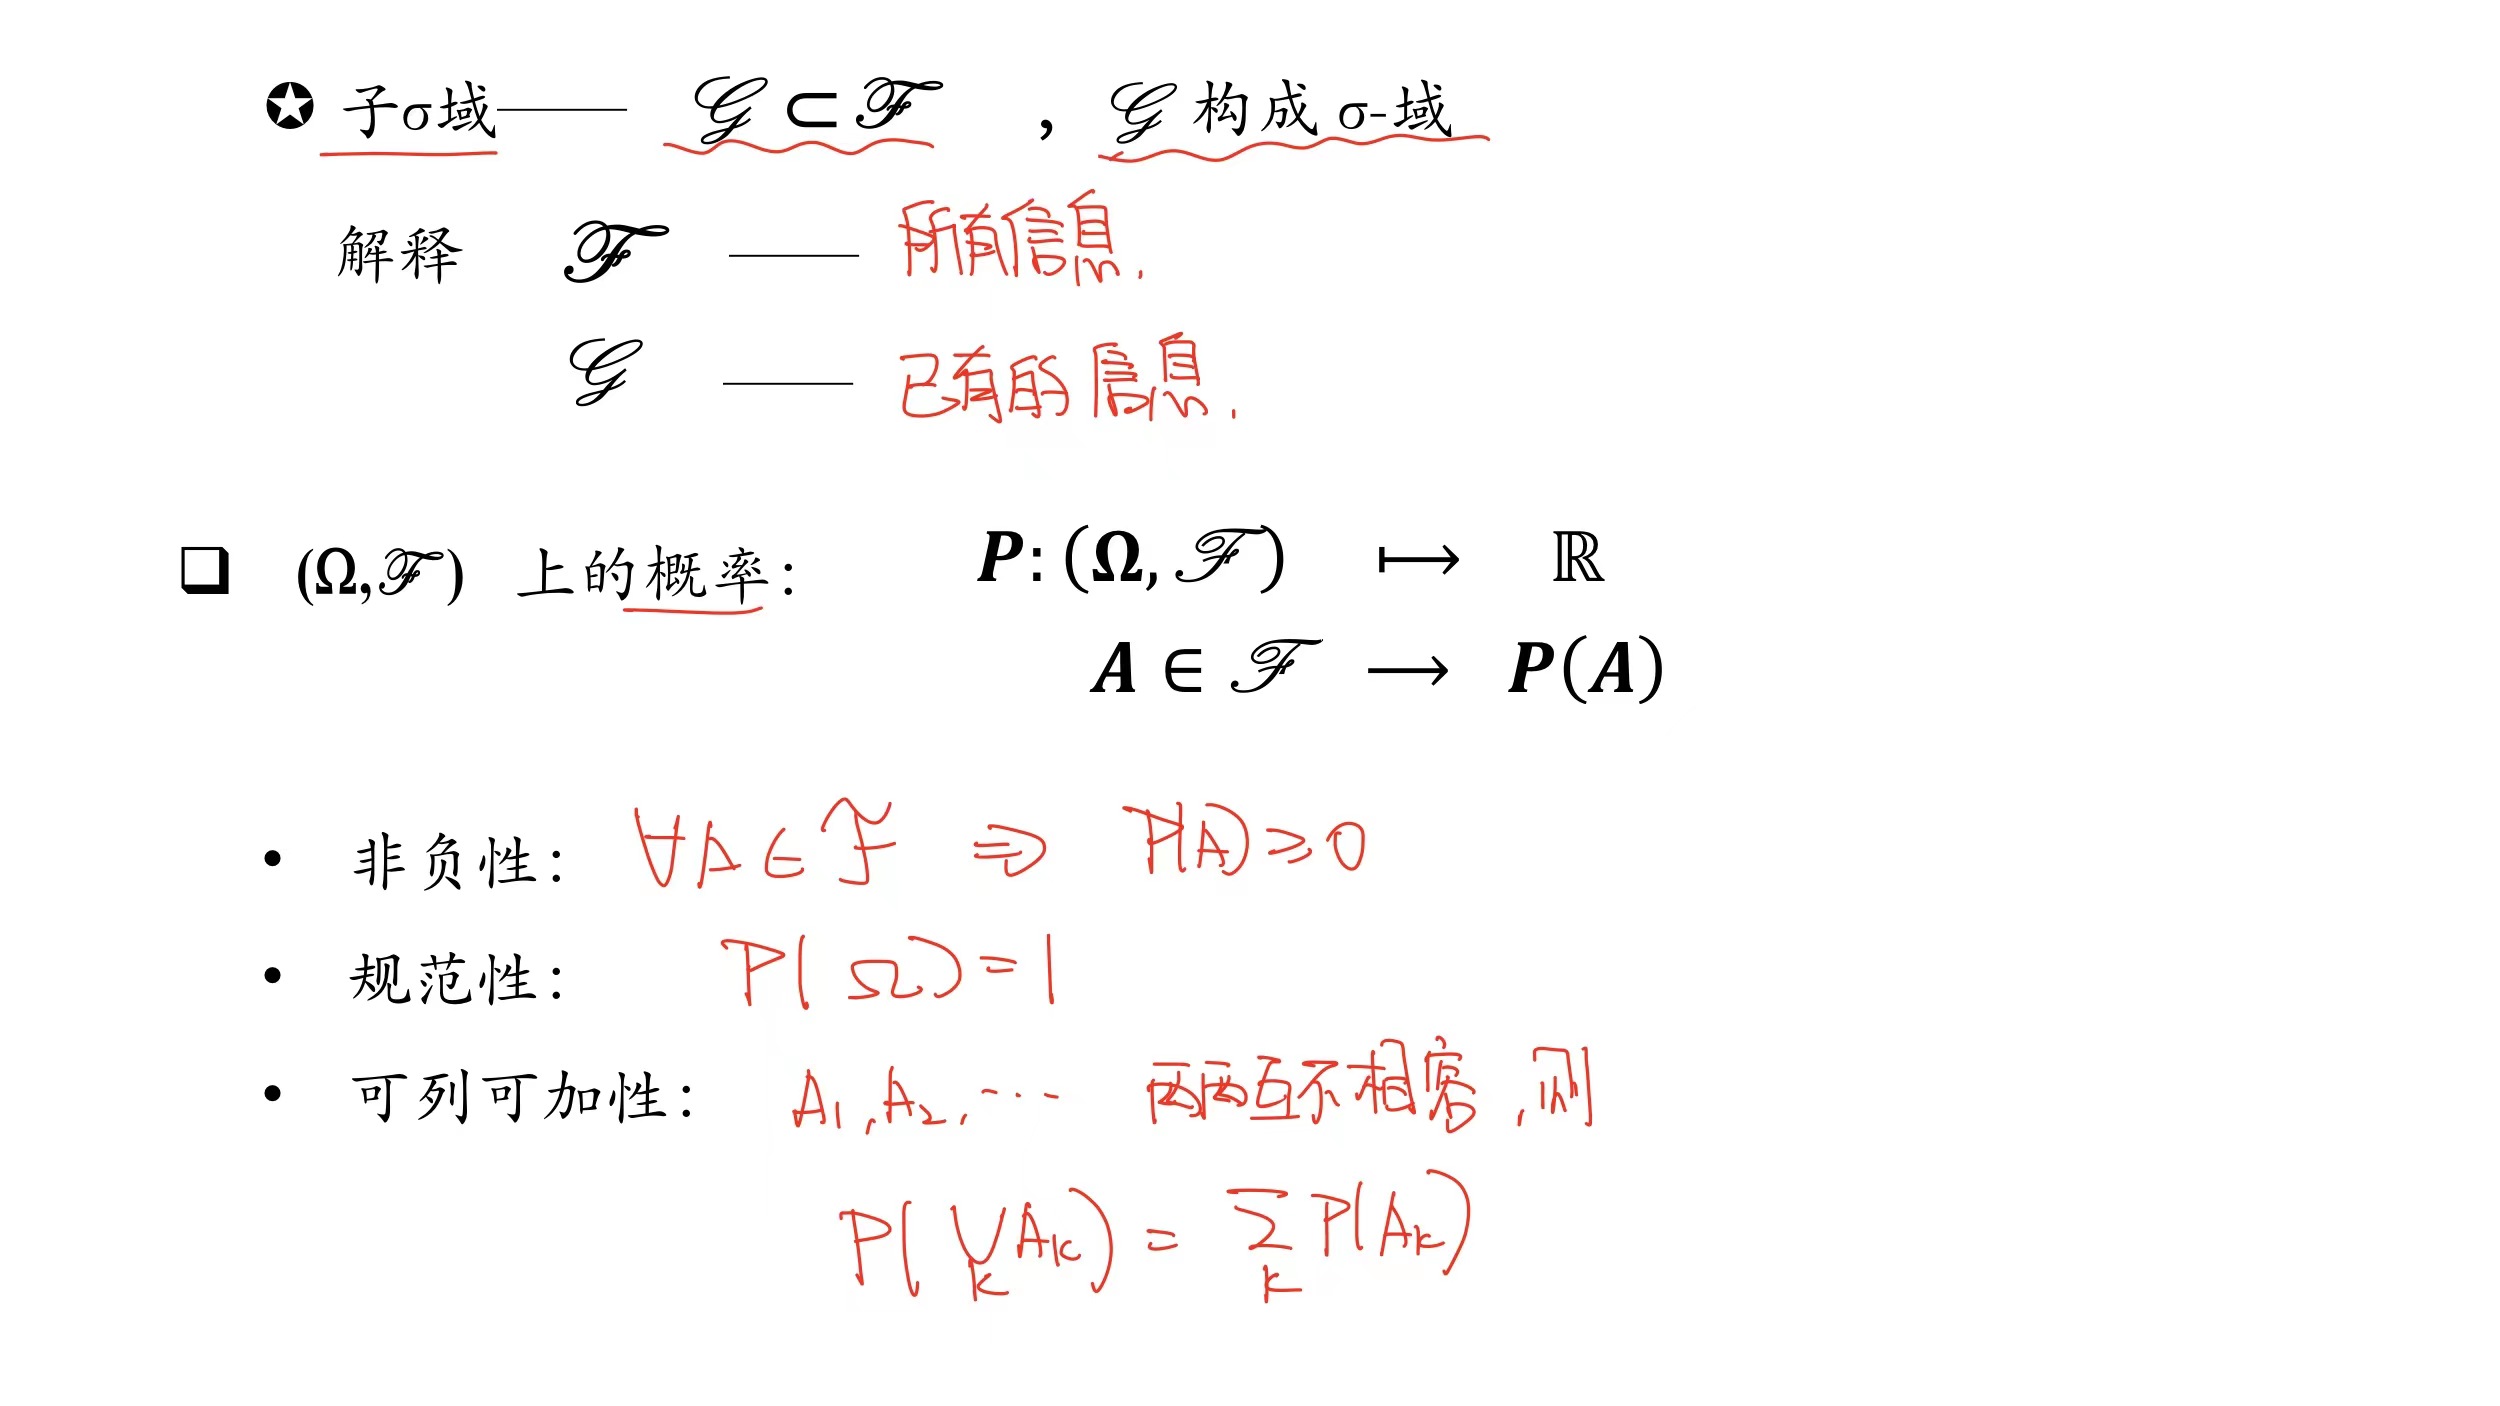 ✪ 子σ域—— 𝒢 ⊂ ℱ , 𝒢 构成 σ-域
解释 ℱ —— 所有信息.
𝒢 —— 已有的信息.
❑ (Ω,ℱ) 上的概率: P: (Ω, ℱ) ⟼ ℝ
A ∈ ℱ ⟶ P(A)
• 非负性: ∀A∈ℱ ⇒ P(A)≥0
• 规范性: P(Ω)=1
• 可列可加性: A₁,A₂,⋯ 两两互不相容,则
P(⋃ₖAₖ) = ∑ₖP(Aₖ)